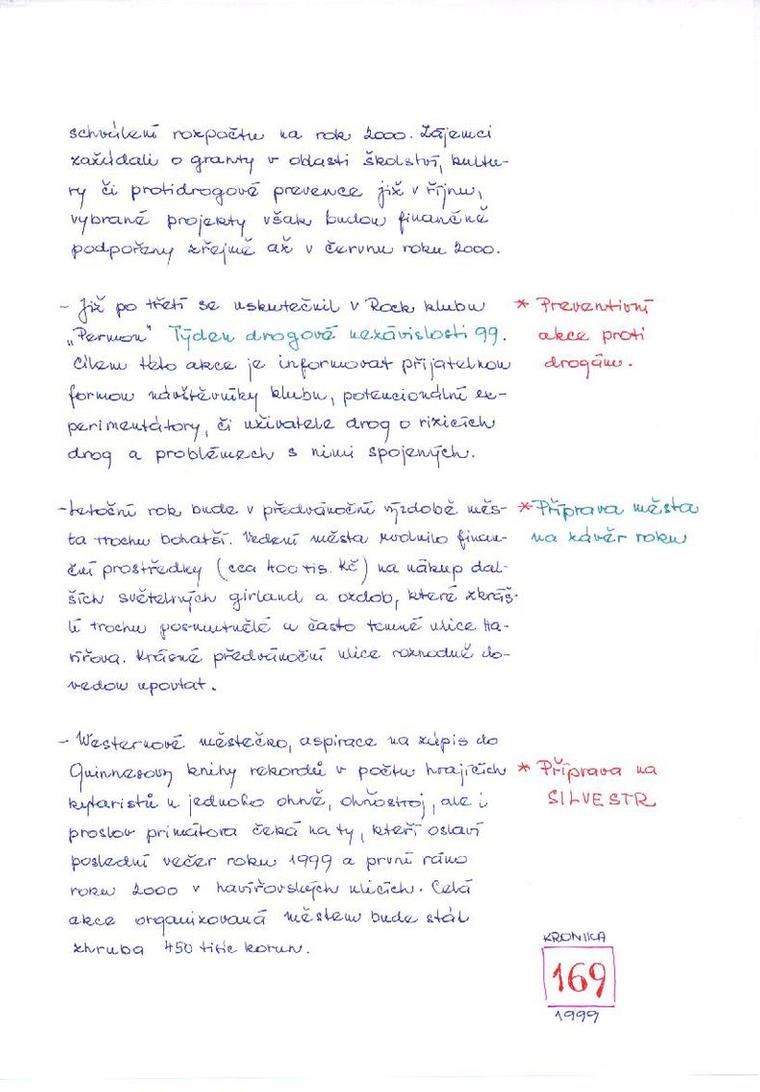 schválení rozpočtu na rok 2000. Zájemci
zažádali o granty v oblasti školství, kultu-
ry či protidrogové prevence již v říjnu,
vybrané projekty však budou finančně
podpořeny zřejmě až v červnu roku 2000.
- Již po třetí se uskutečnil v Rock klubu
"Permon" Týden drogové nezávislosti 99.
Cílem této akce je informovat přijatelnou
formou návštěvníky klubu, potencionální ex-
perimentátory, či uživatele drog o rizicích
drog a problémech s nimi spojených.
* Preventivní
akce proti
drogám.
- Letošní rok bude v předvánoční výzdobě měs-
ta trochu bohatší. Vedení města uvolnilo finan-
ční prostředky (cca 400 tis. Kč) na nákup dal-
ších světelných girland a ozdob, které zkráš-
lí trochu posmutnělé a často temné ulice Ha-
vířova. Krásné předvánoční ulice rozhodně do-
vedou upoutat.
* Příprava města
na závěr roku
- Westernové městečko, aspirace na zápis do
Quinnesovy knihy rekordů v počtu hrajících
kytaristů u jednoho ohně, ohňostroj, ale i
proslov primátora čeká na ty, kteří oslaví
poslední večer roku 1999 a první ráno
roku 2000 v havířovských ulicích. Celá
akce organizovaná městem bude stát
zhruba 450 tisíc korun.
* Příprava na
SILVESTR
KRONIKA
169
1999